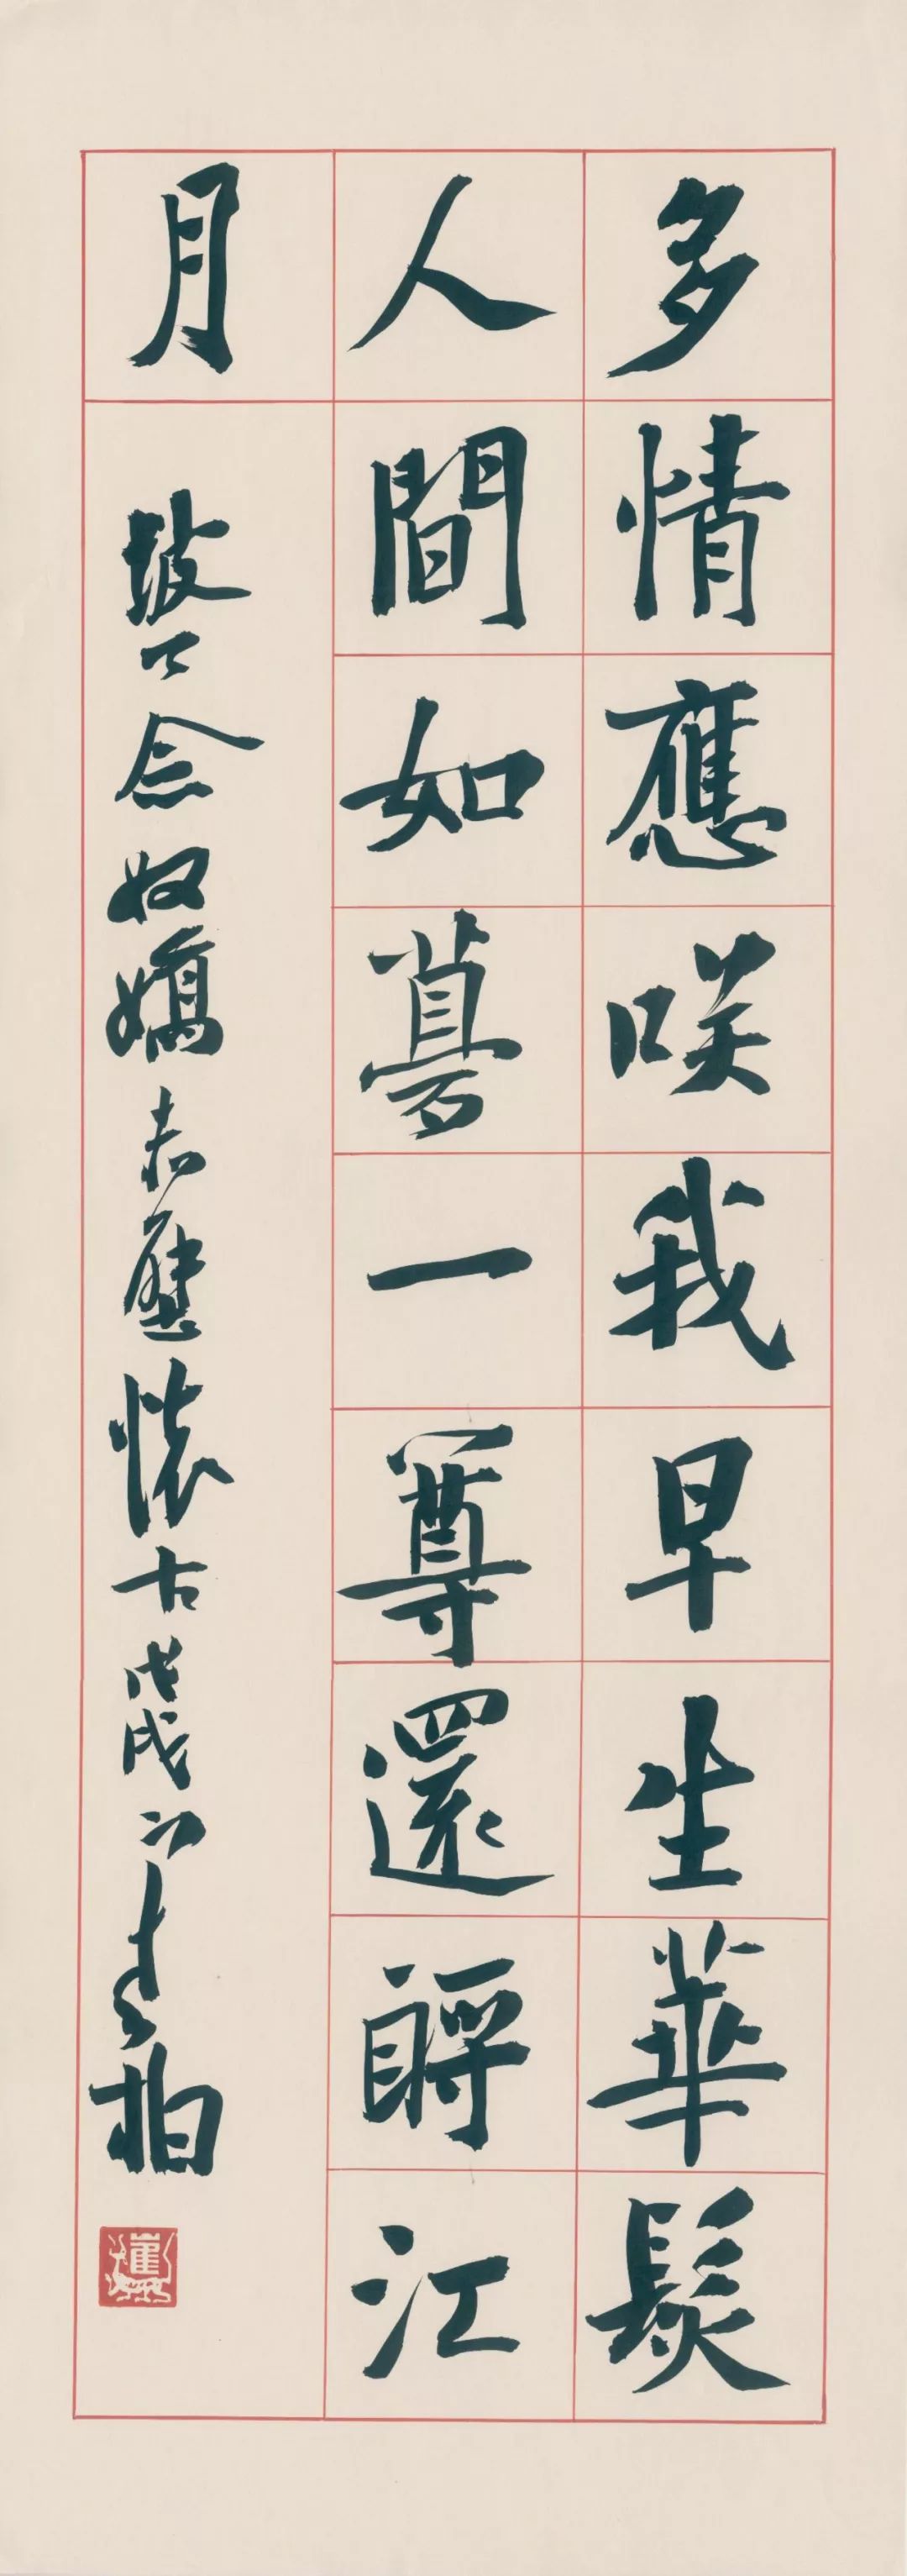 多情應咲我早生華髮
人間如夢一尊還酹江
月
坡公念奴嬌赤壁懷古戊戌